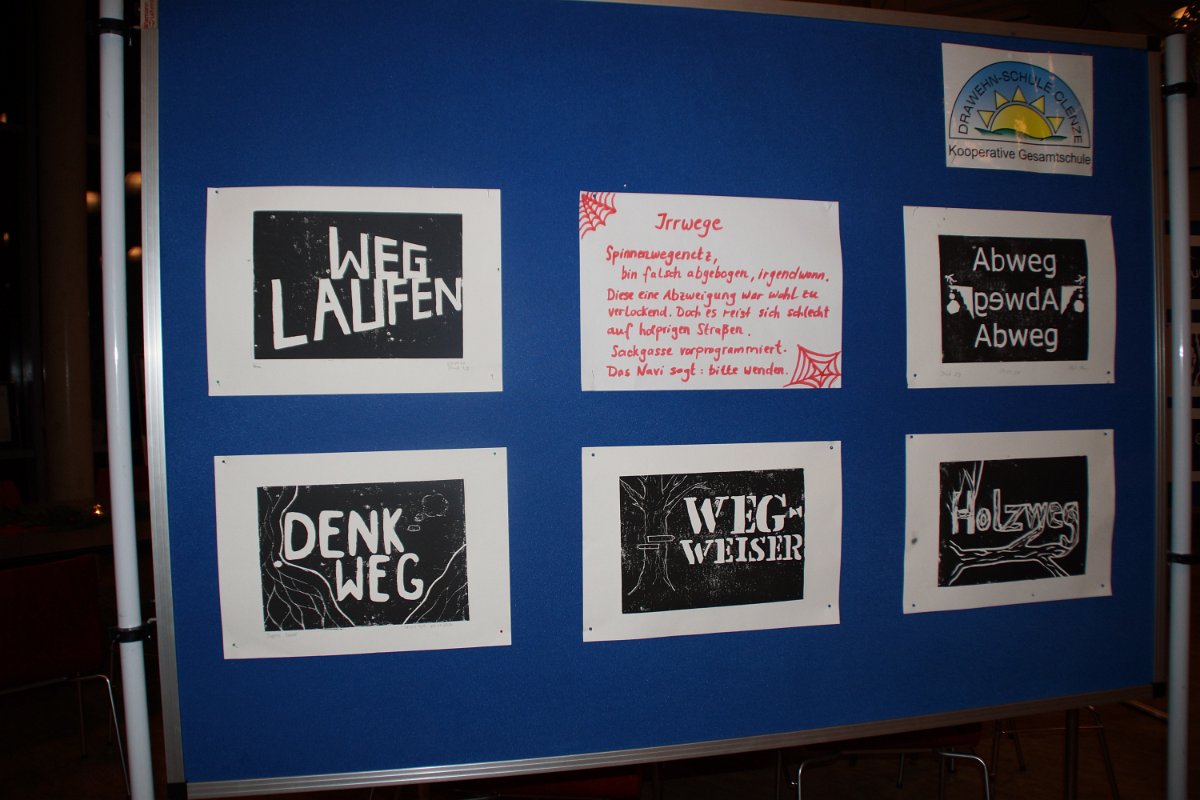 DRAWEHN-SCHULE CLENZE
Kooperative Gesamtschule
WEG
LAUFEN
Irrwege
Spinnenwegenetz,
bin falsch abgebogen, irgendwann.
Diese eine Abzweigung war wohl zu
verlockend. Doch es reist sich schlecht
auf holprigen Straßen.
Sackgasse vorprogrammiert.
Das Navi sagt: bitte wenden.
Abweg
Abweg
Abweg
DENK
WEG
WEG-
WEISER
Holzweg